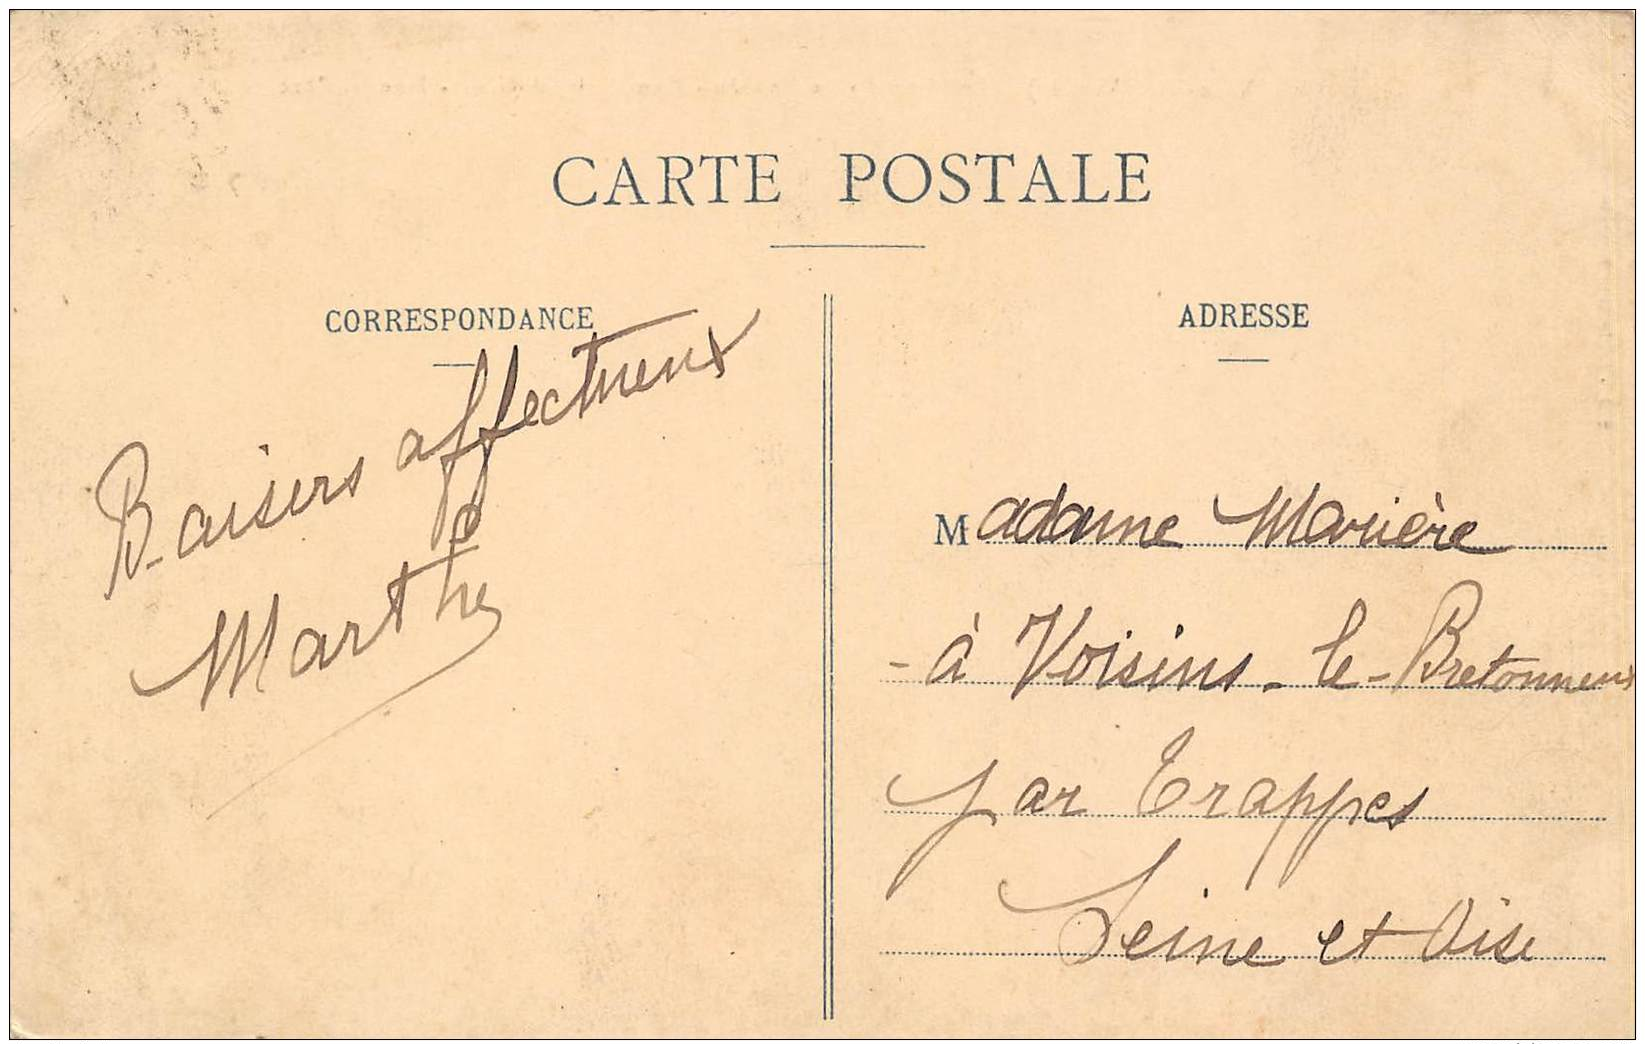 CARTE POSTALE
CORRESPONDANCE
Baisers affectueux
Marthe
ADRESSE
Madame Marière
- à Voisins-le-Bretonneux
par Trappes
Seine et Oise